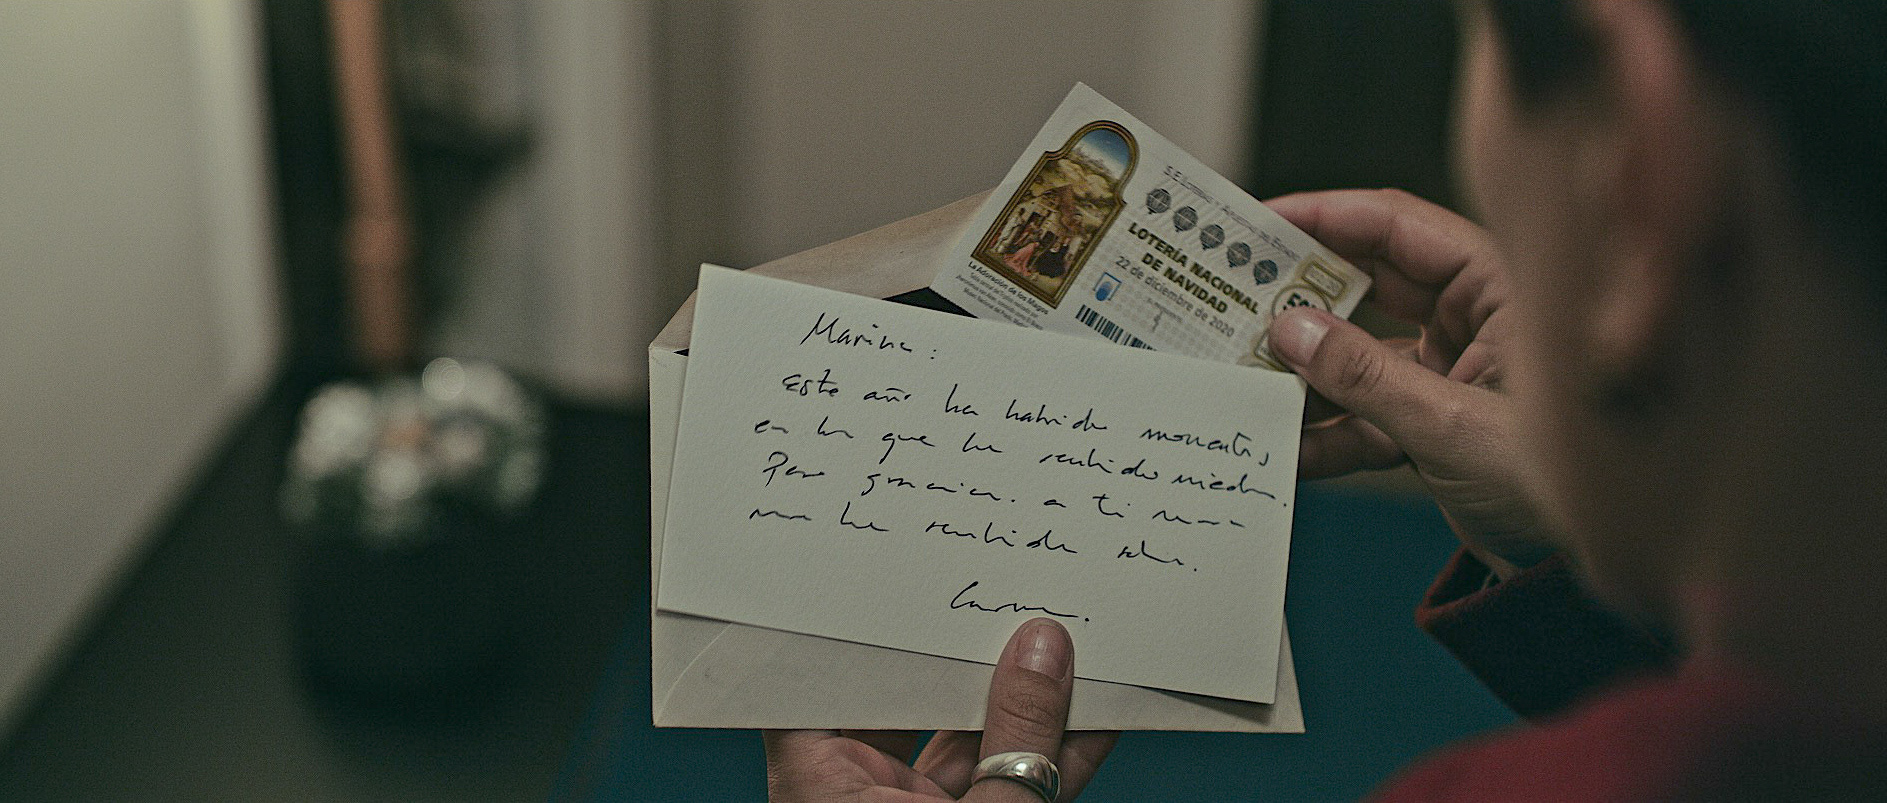 S.E. LOTERÍAS Y APUESTAS DEL ESTADO
LOTERÍA NACIONAL
DE NAVIDAD
22 de diciembre de 2020
La Adoración de los Magos
Marina:
Este año ha habido momentos
en los que he sentido miedo.
Pero gracias a ti nunca
me he sentido sola.
Carmen.